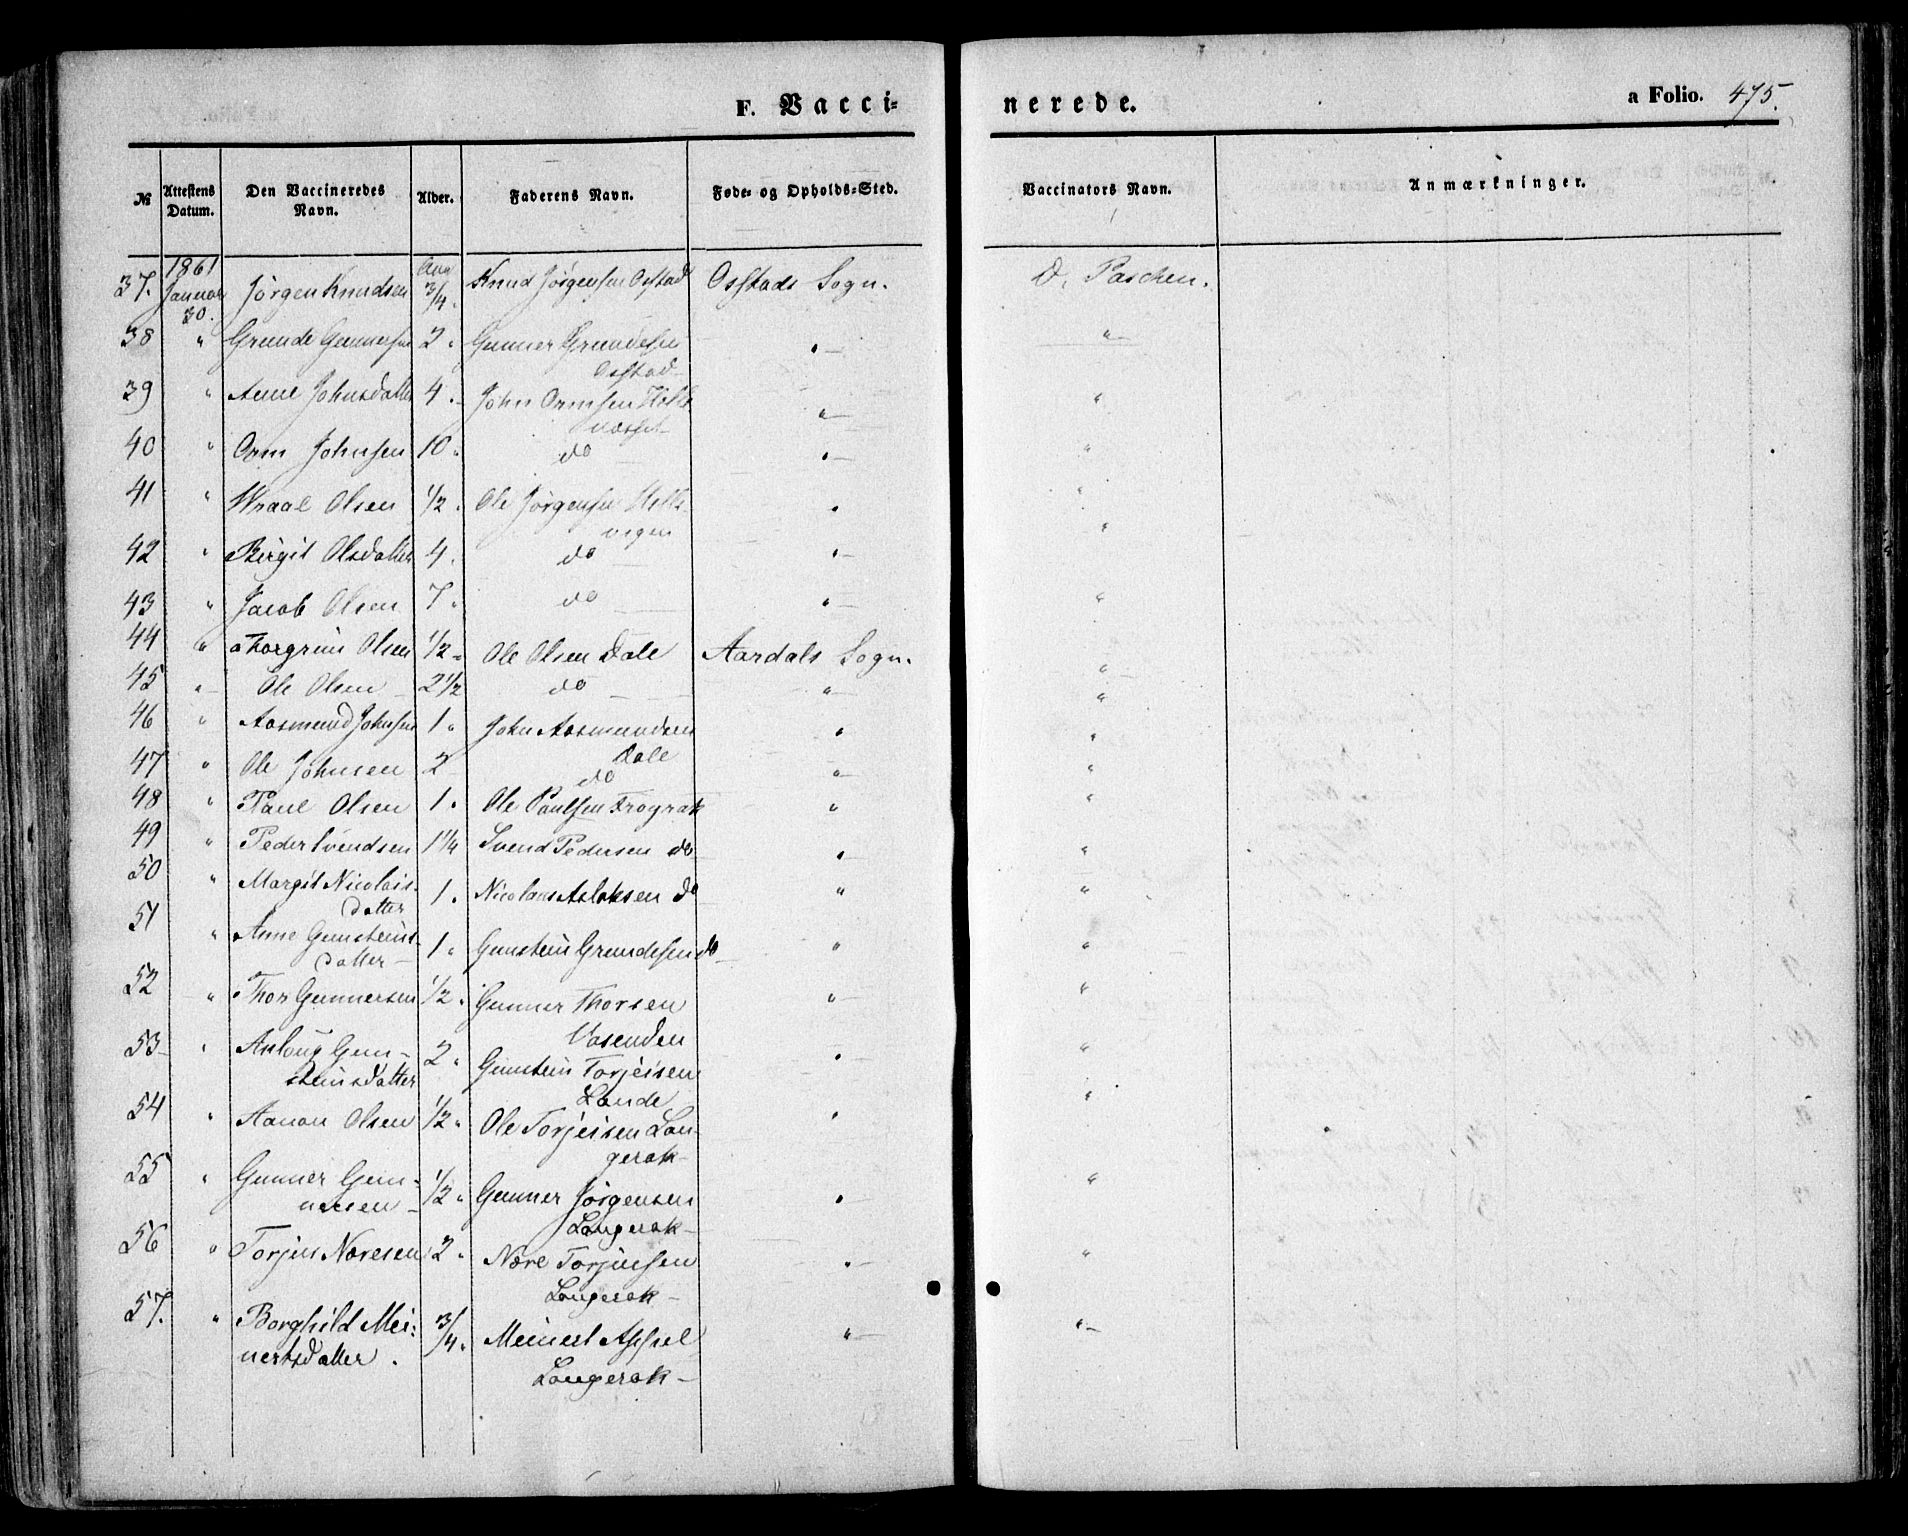 F. Vacci-
nerede.
a Folio. 475.
№ Attestens Datum. Den Vaccineredes Navn. Alder. Faderens Navn. Føde- og Opholds-Sted. Vaccinators Navn. Anmærkninger.
1861
37. Januar 30. Jørgen Knudsen 3/4. Knud Jørgensen Osstad Osstads Sogn. D, Paschen.
38 " Grunde Gunnersen 2 " Gunner Grundesen "— "
Osstad
39 " Anne Johnsdatter 4 . John Ormsen "— "
40 " Orm Johnsen 10 " do "— "
41 " Wraal Olsen 1/2 . Ole Jørgensen " "
vigen
42 " Birgit Olsdatter 4 . do "— "
43 " Jacob Olsen 7 " do "— "
44 " Torgrim Olsen 1/2 " Ole Olsen Dale Aardals Sogn. "
45 " Ole Olsen 2 1/2 do " "
46 " Aasmund Johnsen 1 " John Aasmundsen " "
Dale
47 " Ole Johnsen 2 do " "
48 " Paul Olsen 1 . Ole Paulsen Frøyrak " "
49 " Peder Svendsen 1 1/4 Svend Pedersen do " "
50 " Margit Nicolais- 1 . Nicolaus Aslaksen do " "
datter
51 " Anne Gunsteins- 1 " Gunstein Grundesen do " "
datter
52 " Thor Gunnersen 1/2 . Gunner Thorsen "— "
Vasenden
53 " Anlaug Gun- 2 " Gunstein Torjeisen " "
steinsdatter Lande
54 " Aanon Olsen 1/2 " Ole Torjeisen Lan- " "
gerak
55 " Gunner Gun- 1/2 " Gunner Jørgensen "— "
nersen Langerak
56 " Torjus Noresen 2 " Nore Torjusen "— "
Langerak
57. " Borghild Mei- 3/4 . Meinert Appel "— "—
nertsdatter . Langerak